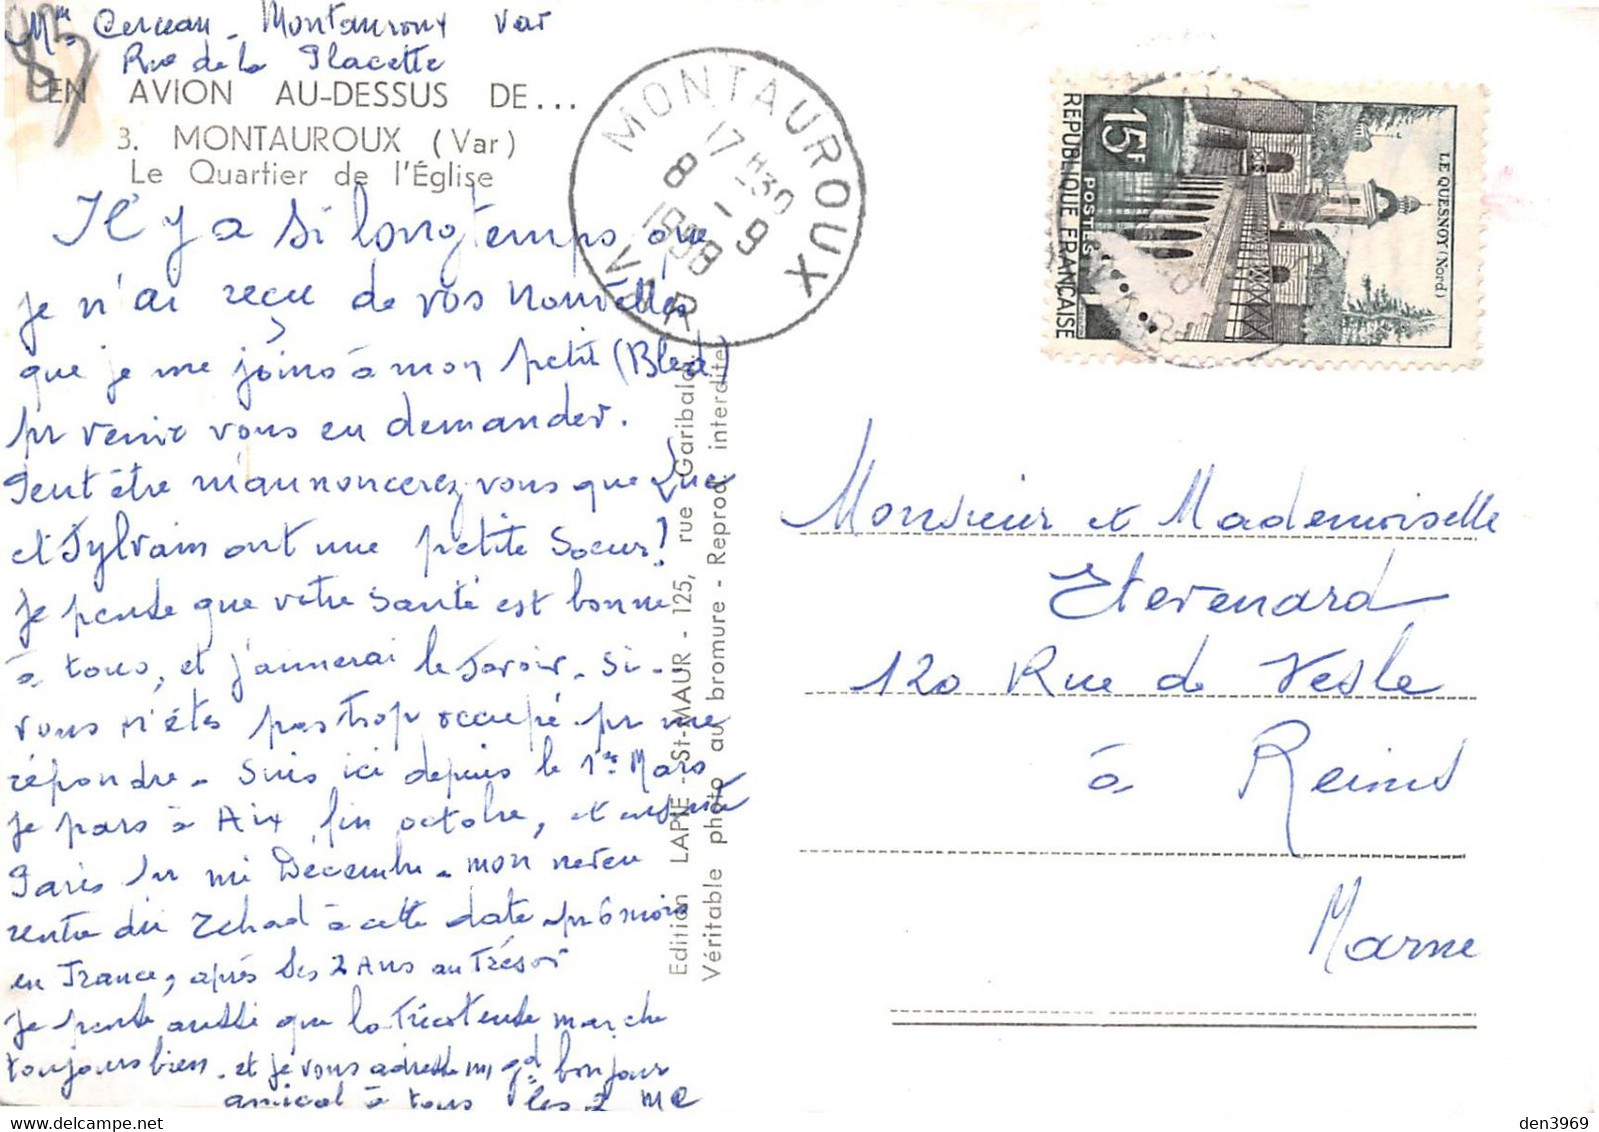 Mme Cerceau - Montauroux Var
Rue de la Placette
EN AVION AU-DESSUS DE...
3. MONTAUROUX (Var)
Le Quartier de l'Église
Il y a si longtemps que
je n'ai reçu de vos nouvelles
que je me joins à mon petit (Bled)
pr venir vous en demander.
Peut être m'annoncerez-vous que Luc
et Sylvain ont une petite Soeur!
Je pense que votre santé est bonne
à tous, et j'aimerai le savoir - si -
vous n'êtes pas trop occupé pr me
répondre - Suis ici depuis le 1er Mars
Je pars à Aix fin octobre, et ensuite
Paris sur mi Décembre - mon neveu
rentre du Tchad à cette date pr 6 mois
en France, après ses 2 Ans au Trésor
Je pense aussi que la Tricoteuse marche
toujours bien - et je vous adresse un gd bonjour
amical à tous les 2 MC
MONTAUROUX
17 H 30
8 - 9
1958
VAR
Edition LAPIE - St-MAUR - 125, rue Garibaldi
Véritable photo au bromure - Reprod. interdite
REPUBLIQUE FRANÇAISE
15F
POSTES
LE QUESNOY (Nord)
Monsieur et Mademoiselle
Etevenard
120 Rue de Vesle
à Reims
Marne
den3969